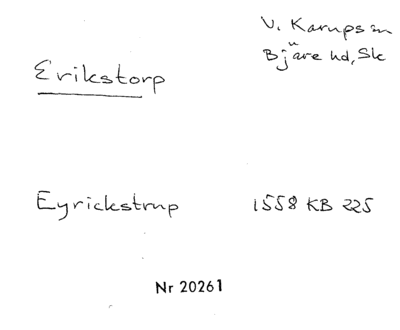 V. Karups sn
Bjäre hd, Sk
Erikstorp
Eyrickstrup 1558 KB 225
Nr 20261